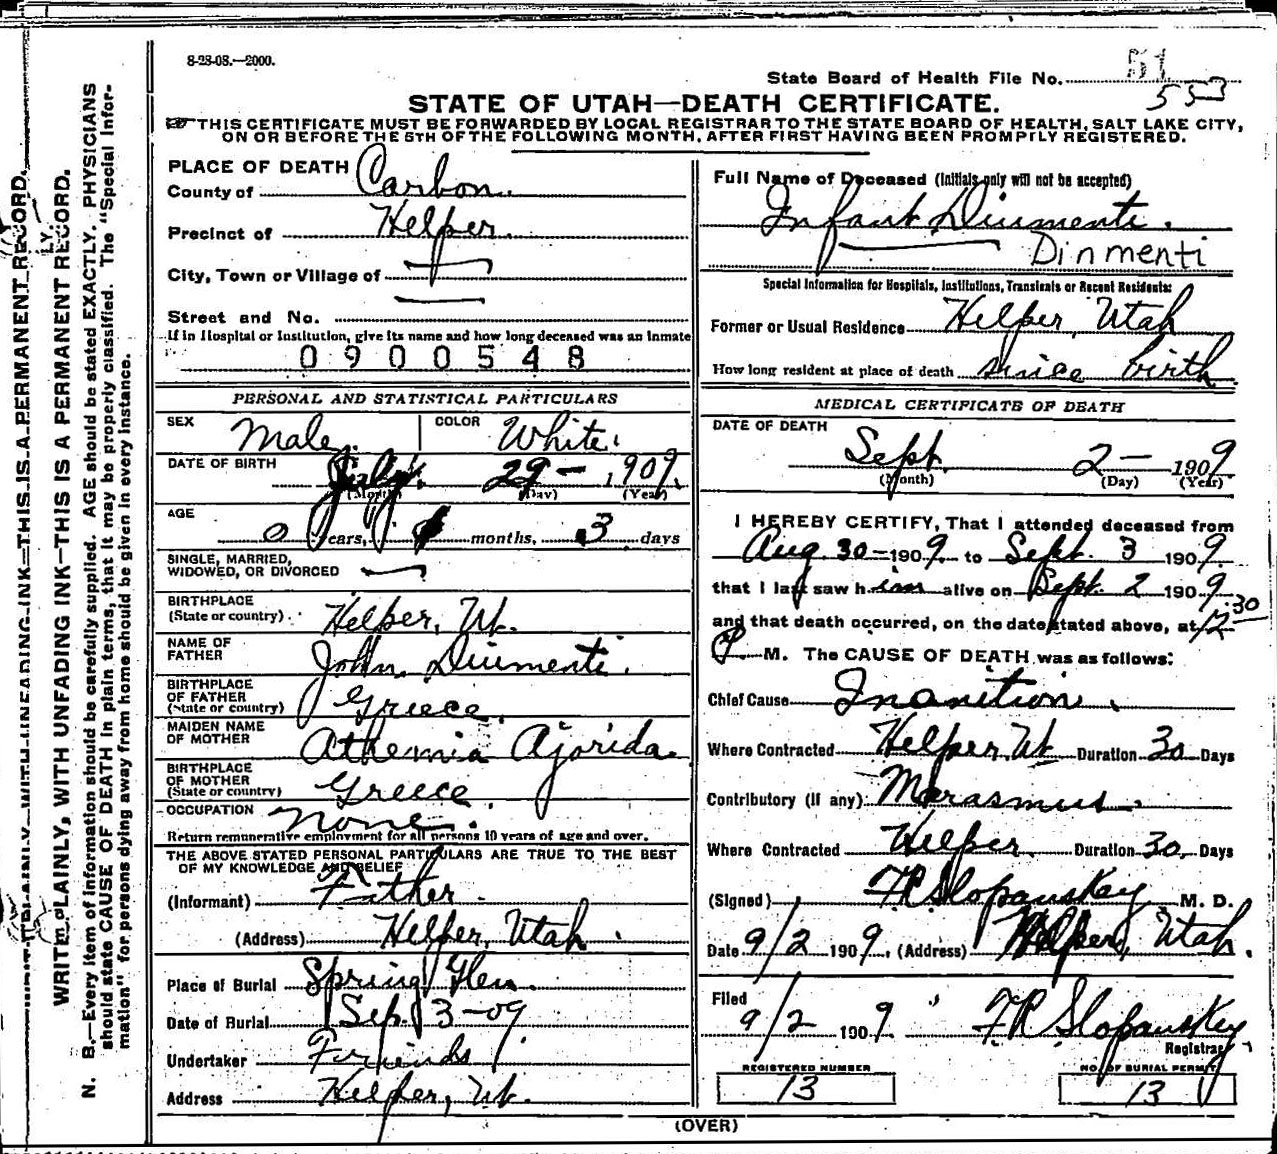 8-28-08.—2000.
51
State Board of Health File No. 553
STATE OF UTAH—DEATH CERTIFICATE.
THIS CERTIFICATE MUST BE FORWARDED BY LOCAL REGISTRAR TO THE STATE BOARD OF HEALTH, SALT LAKE CITY,
ON OR BEFORE THE 5TH OF THE FOLLOWING MONTH, AFTER FIRST HAVING BEEN PROMPTLY REGISTERED.
WRITE PLAINLY, WITH UNFADING INK—THIS IS A PERMANENT RECORD.
N. B.—Every item of information should be carefully supplied. AGE should be stated EXACTLY. PHYSICIANS
should state CAUSE OF DEATH in plain terms, that it may be properly classified. The "Special Infor-
mation" for persons dying away from home should be given in every instance.
PLACE OF DEATH
County of Carbon.
Precinct of Helper.
City, Town or Village of
Street and No.
If in Hospital or Institution, give its name and how long deceased was an Inmate
0900548
PERSONAL AND STATISTICAL PARTICULARS
SEX Male. COLOR White.
DATE OF BIRTH July 29 — 1909.
(Month) (Day) (Year)
AGE
0 years, months, 3 days
SINGLE, MARRIED,
WIDOWED, OR DIVORCED
BIRTHPLACE
(State or country) Helper, Ut.
NAME OF
FATHER John Diumenti.
BIRTHPLACE
OF FATHER
(State or country) Greece.
MAIDEN NAME
OF MOTHER Athemia Ajorida.
BIRTHPLACE
OF MOTHER
(State or country) Greece.
OCCUPATION None.
Return remunerative employment for all persons 10 years of age and over.
THE ABOVE STATED PERSONAL PARTICULARS ARE TRUE TO THE BEST
OF MY KNOWLEDGE AND BELIEF
(Informant) Father.
(Address) Helper, Utah.
Place of Burial Spring Glen.
Date of Burial Sep. 3-09
Undertaker Feriends
Address Helper, Ut.
Full Name of Deceased (Initials only will not be accepted)
Infant Diumenti.
Dinmenti
Special Information for Hospitals, Institutions, Transients or Recent Residents:
Former or Usual Residence Helper, Utah
How long resident at place of death since birth
MEDICAL CERTIFICATE OF DEATH
DATE OF DEATH
Sept. 2 — 1909
(Month) (Day) (Year)
I HEREBY CERTIFY, That I attended deceased from
Aug. 30 — 1909 to Sept. 3 1909
that I last saw him alive on Sept. 2 1909
and that death occurred, on the date stated above, at 12 30
P M. The CAUSE OF DEATH was as follows:
Chief Cause Inanition.
Where Contracted Helper Ut Duration 30 Days
Contributory (if any) Marasmus.
Where Contracted Helper. Duration 30 Days
(Signed) FR Slopanskey M. D.
Date 9/2 1909, (Address) Helper, Utah.
Filed
9/2 1909 FR Slopanskey
Registrar
REGISTERED NUMBER
13
NO. OF BURIAL PERMIT
13
(OVER)